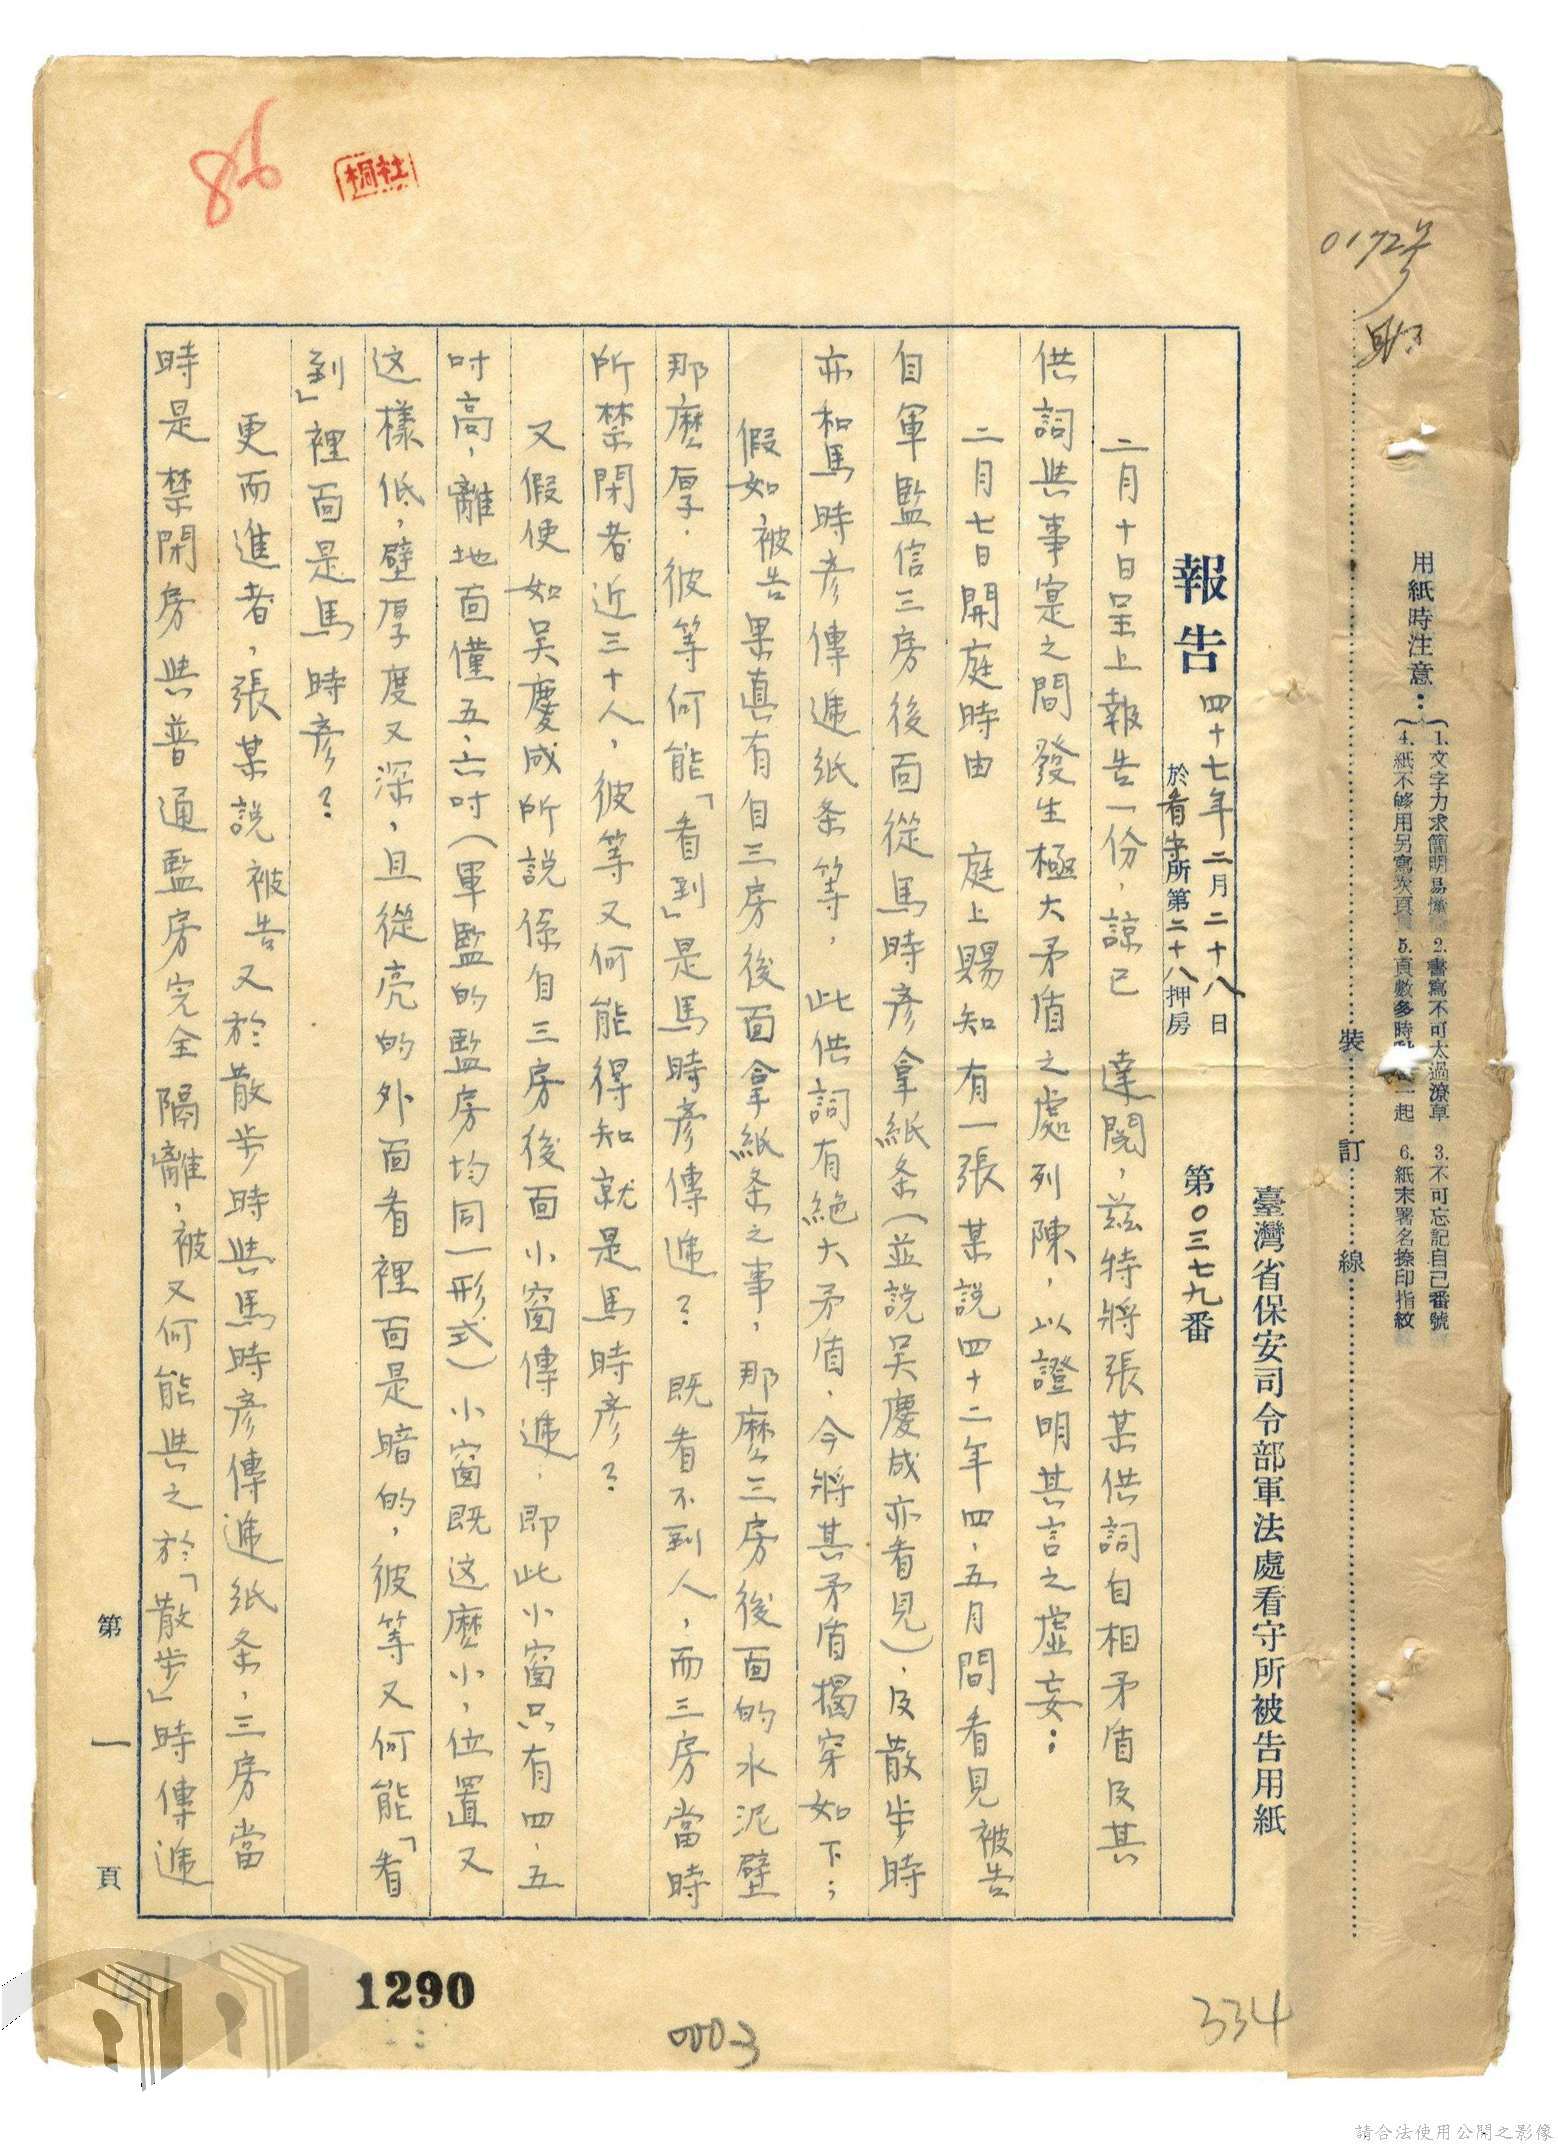 0172号
用紙時注意：
1.文字力求簡明易懂 2.書寫不可太過潦草 3.不可忘記自己番號
4.紙不够用另寫次頁 5.頁數多時 一起 6.紙末署名捺印指紋
裝 訂 線
臺灣省保安司令部軍法處看守所被告用紙
報告 四十七年二月二十八日
於看守所第二十八押房
第〇三七九番
二月十日呈上報告一份，諒已 達閱，茲特將張某供詞自相矛盾及其
供詞與事寔之間發生極大矛盾之處列陳，以證明其言之虛妄：
二月七日開庭時由 庭上賜知有一張某説四十二年四、五月間看見被告
自軍監信三房後面從馬時彥拿紙条（並説吴慶成亦看見）、及散步時
亦和馬時彥傳遞紙条等，此供詞有絶大矛盾．今將其矛盾揭穿如下；
假如被告果真有自三房後面拿紙条之事，那麽三房後面的水泥壁
那麽厚．彼等何能「看到」是馬時彥傳遞？既看不到人，而三房當時
所禁閉者近三十人，彼等又何能得知就是馬時彥？
又假使如吴慶成所説係自三房後面小窗傳遞．即此小窗只有四、五
吋高，離地面僅五、六吋（軍監的監房均同一形式）小窗既这麽小，位置又
这樣低，壁厚度又深，且從亮的外面看裡面是暗的，彼等又何能「看
到」裡面是馬時彥？
更而進者，張某説被告又於散步時與馬時彥傳遞紙条，三房當
時是禁閉房與普通監房完全隔離，被又何能與之於「散步」時傳遞
第一頁
86
桐社
1290
0003
334
請合法使用公開之影像